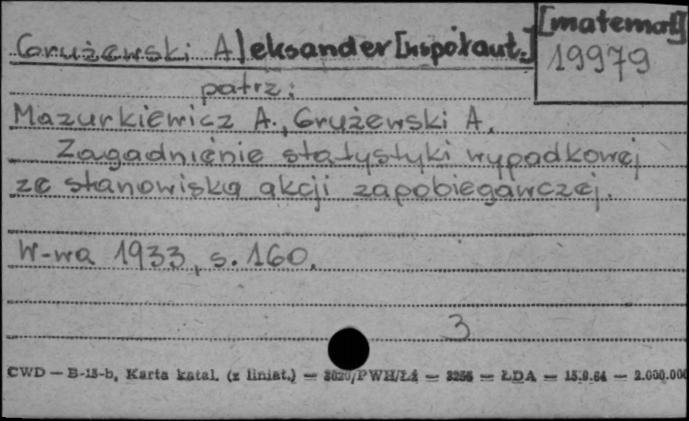 Grużewski Aleksander [współaut.]
[matemat]
19979
patrz:
Mazurkiewicz A., Grużewski A.
Zagadnienie statystyki wypadkowej
ze stanowiska akcji zapobiegawczej.
W-wa 1933, s. 160.
3
CWD — B-15-b, Karta katal. (z liniat.) — 3620/PWH/Łź — 3256 — ŁDA — 15.9.64 — 2.000.000